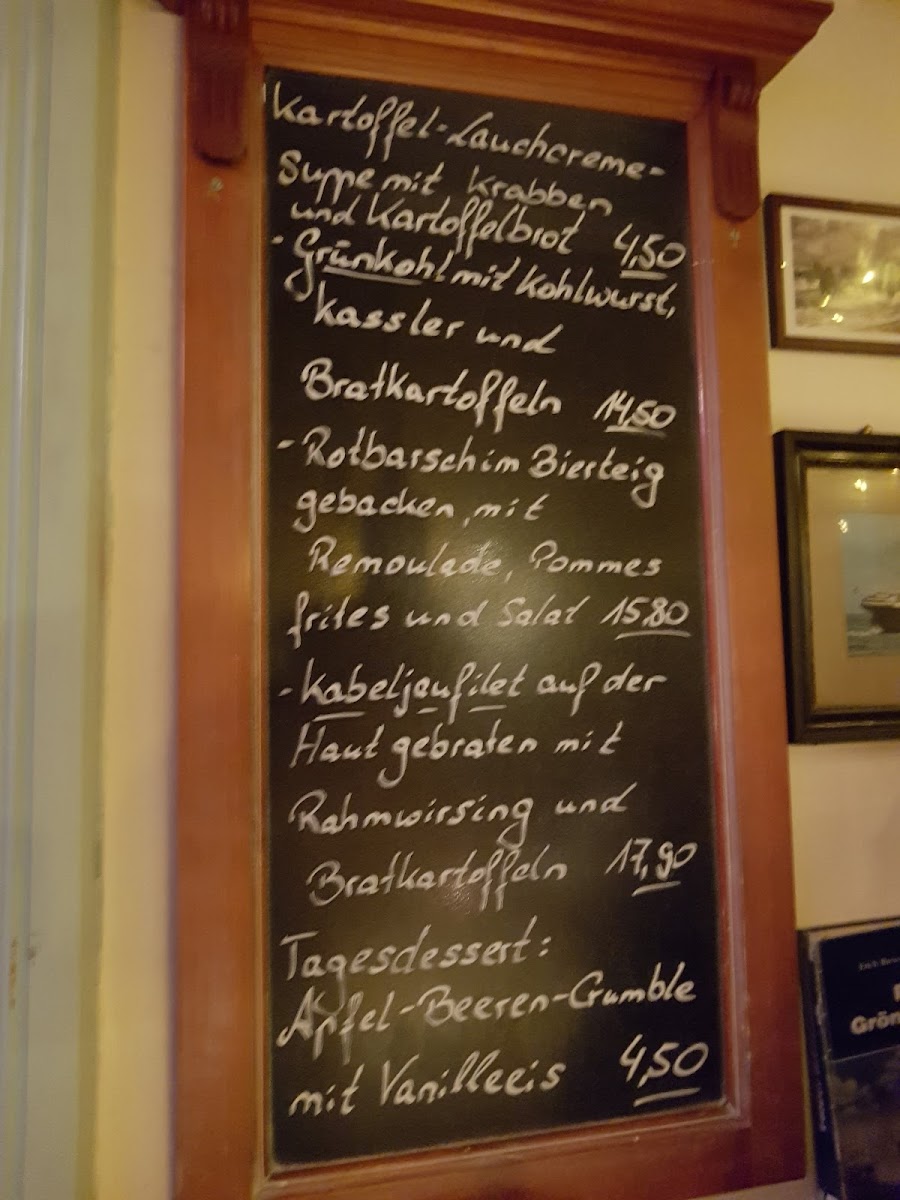 Kartoffel-Lauchcreme-
Suppe mit Krabben
und Kartoffelbrot 4,50
- Grünkohl mit Kohlwurst,
Kassler und
Bratkartoffeln 14,50
- Rotbarsch im Bierteig
gebacken, mit
Remoulade, Pommes
frites und Salat 15,80
- Kabeljaufilet auf der
Haut gebraten mit
Rahmwirsing und
Bratkartoffeln 17,90
Tagesdessert:
Apfel-Beeren-Crumble
mit Vanilleeis 4,50